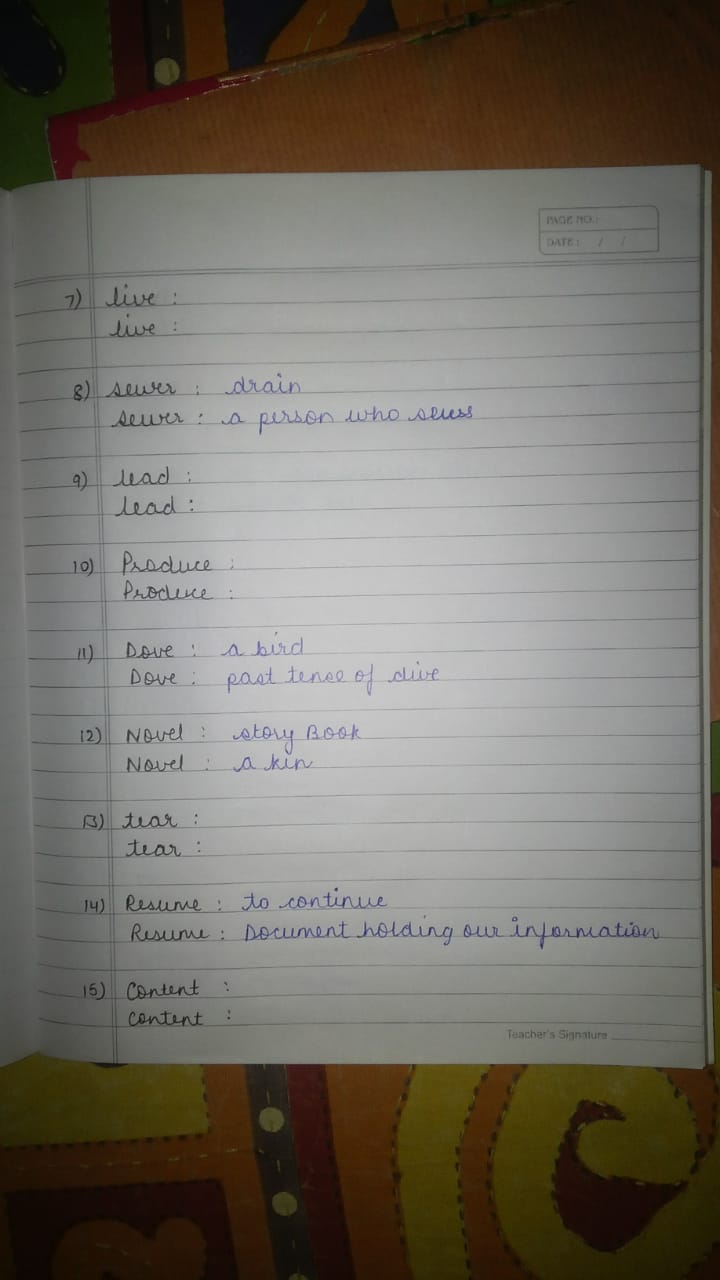 PAGE NO.:
DATE: / /
7) live :
live :
8) sewer : drain
sewer : a person who sews
9) lead :
lead :
10) Produce :
Produce :
11) Dove : a bird
Dove : past tense of dive
12) Novel : story Book
Novel : a kin
13) tear :
tear :
14) Resume : to continue
Resume : Document holding our information
15) Content :
content :
Teacher's Signature